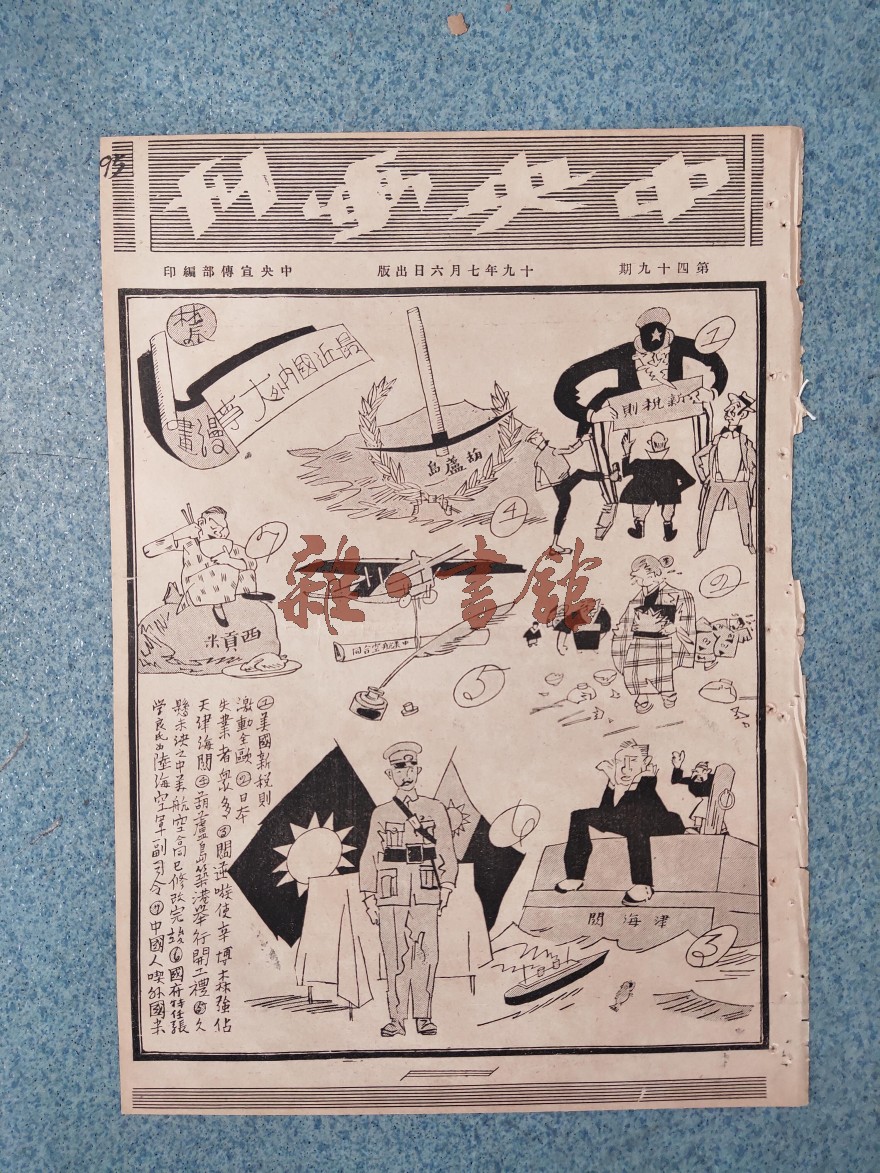 95
中央畫刊
第四十九期
十九年七月六日出版
中央宣傳部編印
最近國內外大事漫畫
①
新稅則
葫蘆島
④
⑦
西貢米
②
中美航空合同
⑤
雜·書館
⑥
津海關
③
①美國新稅則
激動全歐②日本
失業者衆多③閻逆嗾使辛博森強佔
天津海關④葫蘆島築港舉行開工禮⑤久
懸未決之中美航空合同已修改完竣⑥國府特任張
学良氏為陸海空軍副司令⑦中國人喫外國米